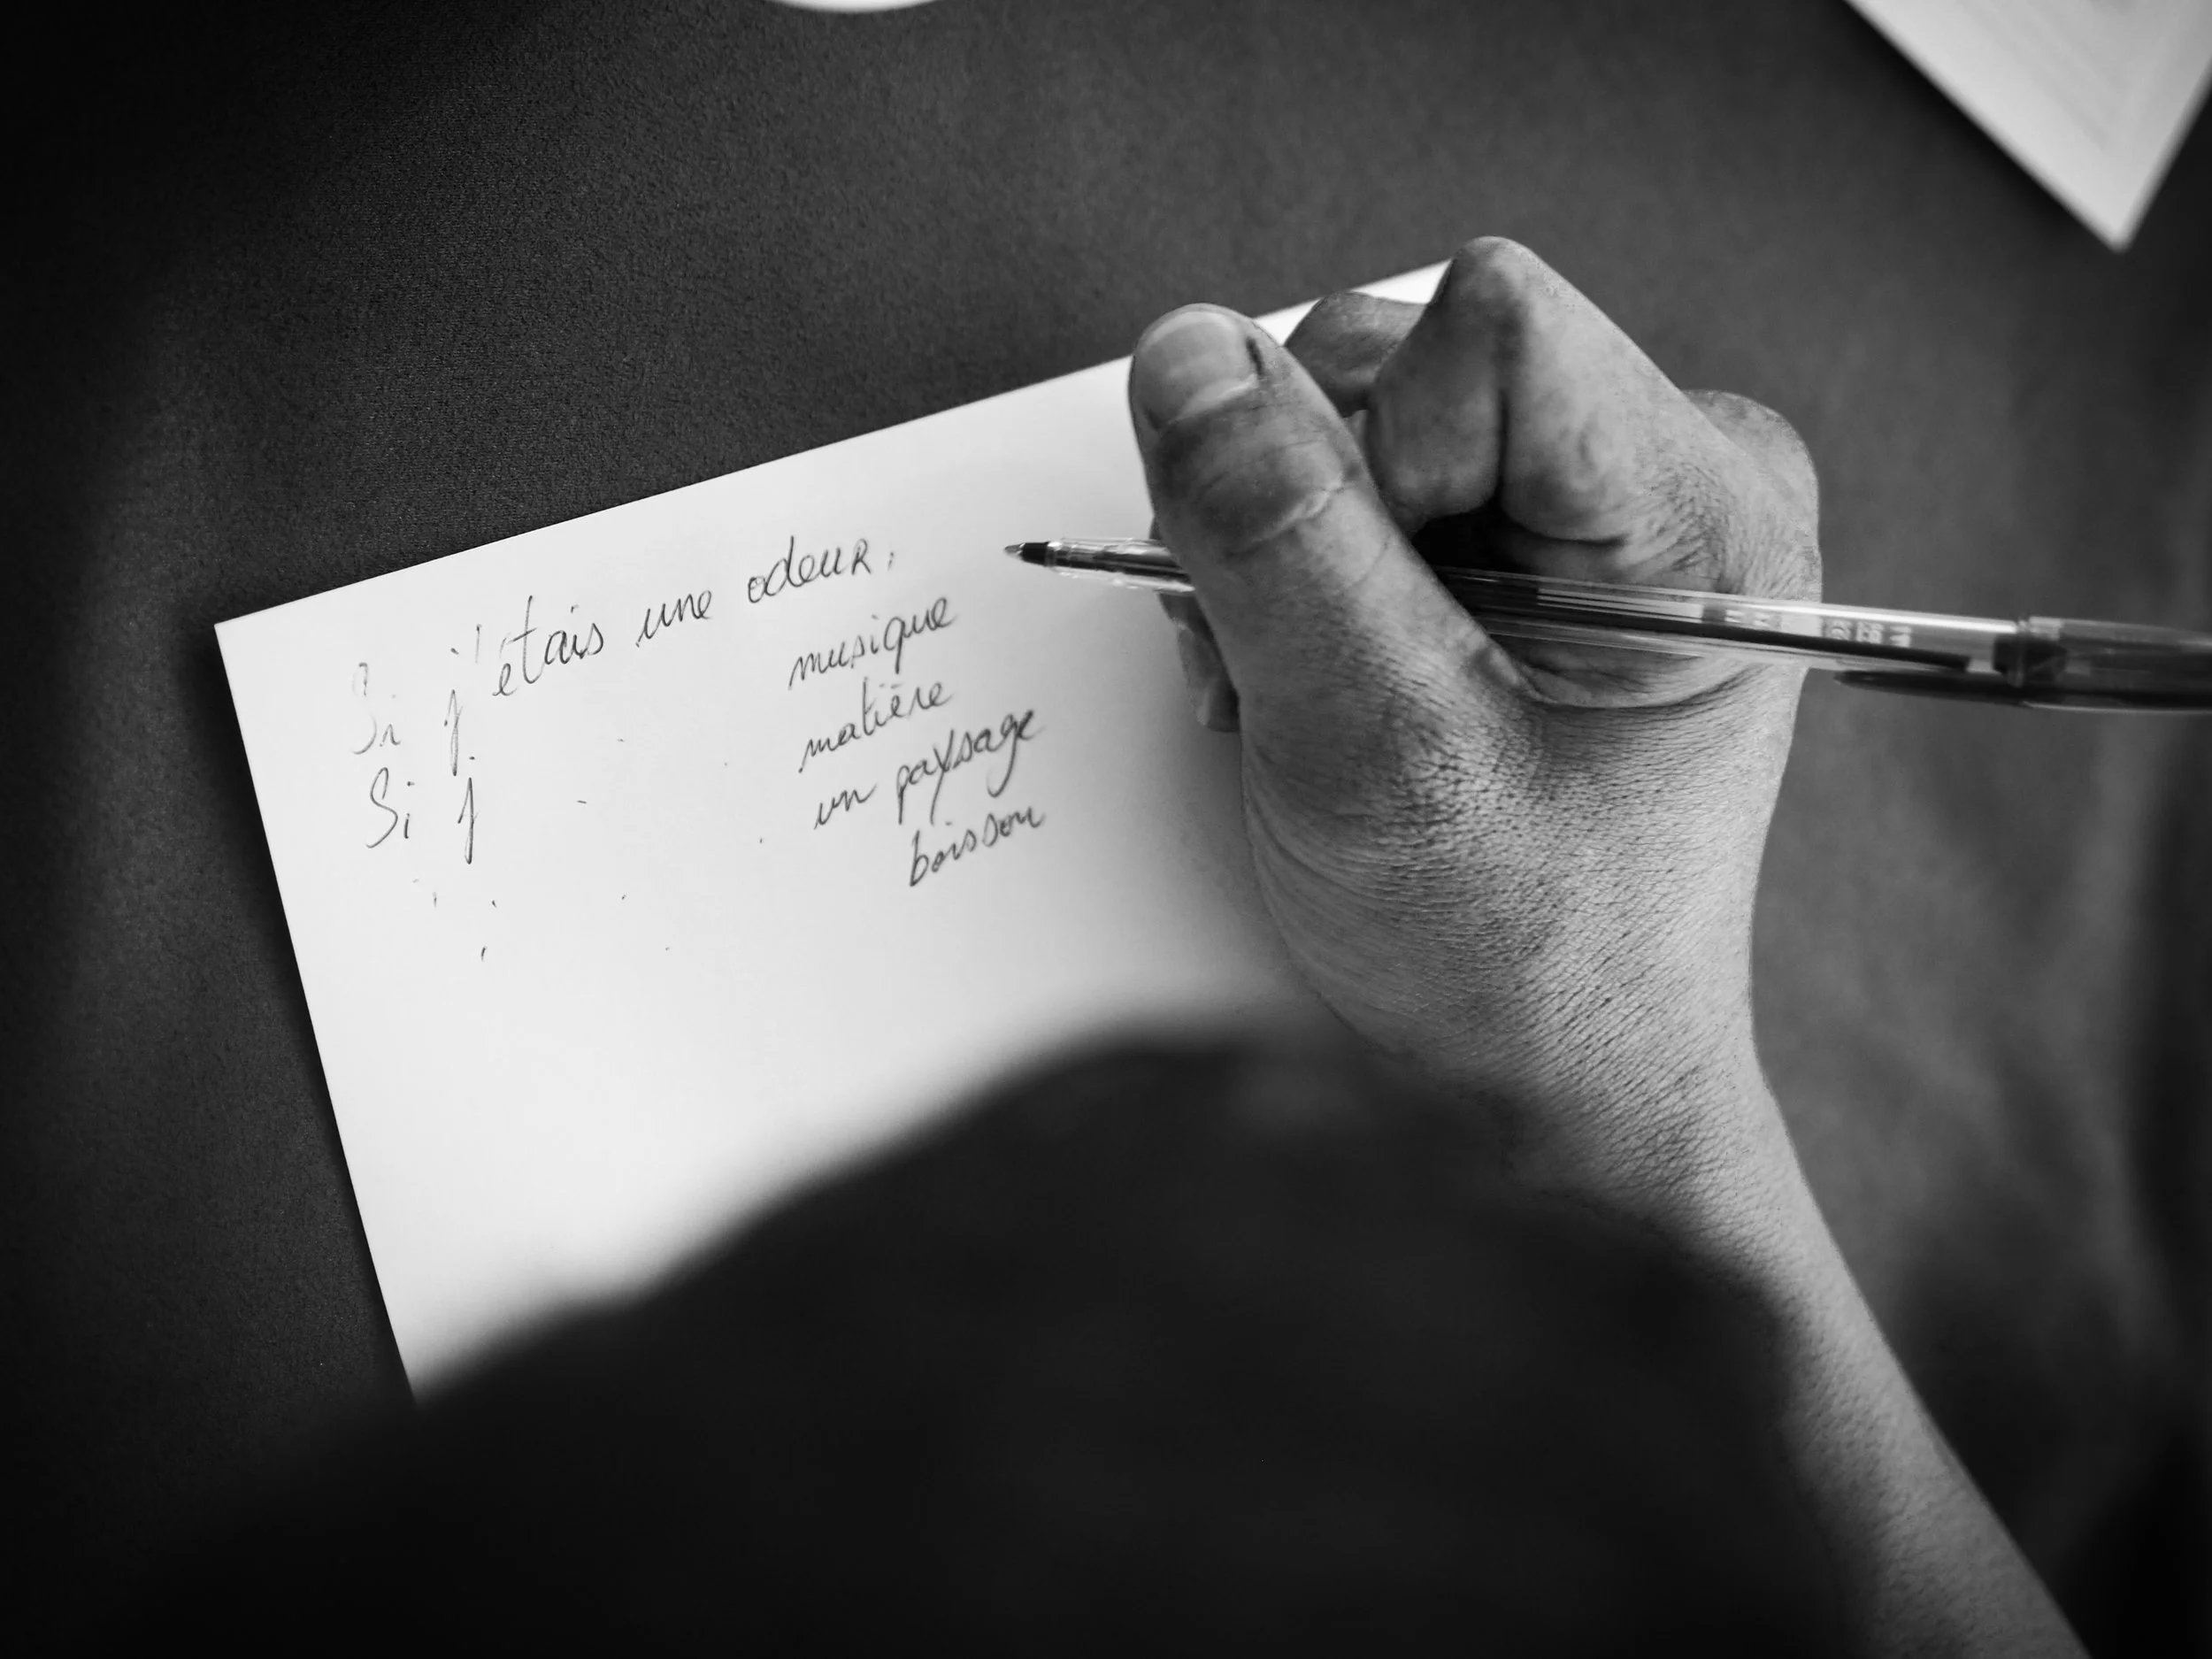 Si j'étais une odeur,
Si j musique
matière
un paysage
boisson